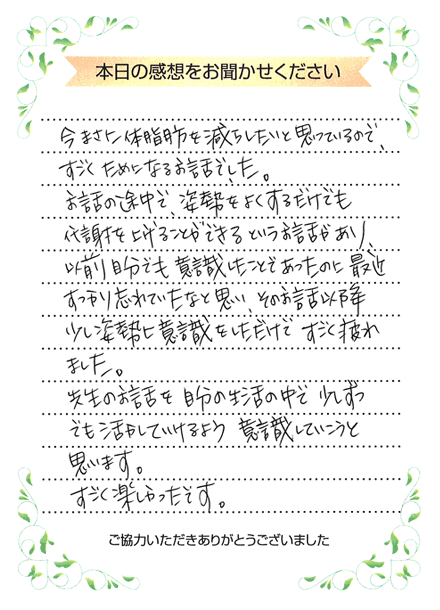 本日の感想をお聞かせください
今まさに体脂肪を減らしたいと思っているので、
すごくためになるお話でした。
お話の途中で、姿勢をよくするだけでも
代謝を上げることができるというお話があり、
以前自分でも意識したことであったのに最近
すっかり忘れていたなと思い、そのお話以降
少し姿勢に意識をしただけですごく疲れ
ました。
先生のお話を自分の生活の中で少しずつ
でも活かしていけるよう意識していこうと
思います。
すごく楽しかったです。
ご協力いただきありがとうございました